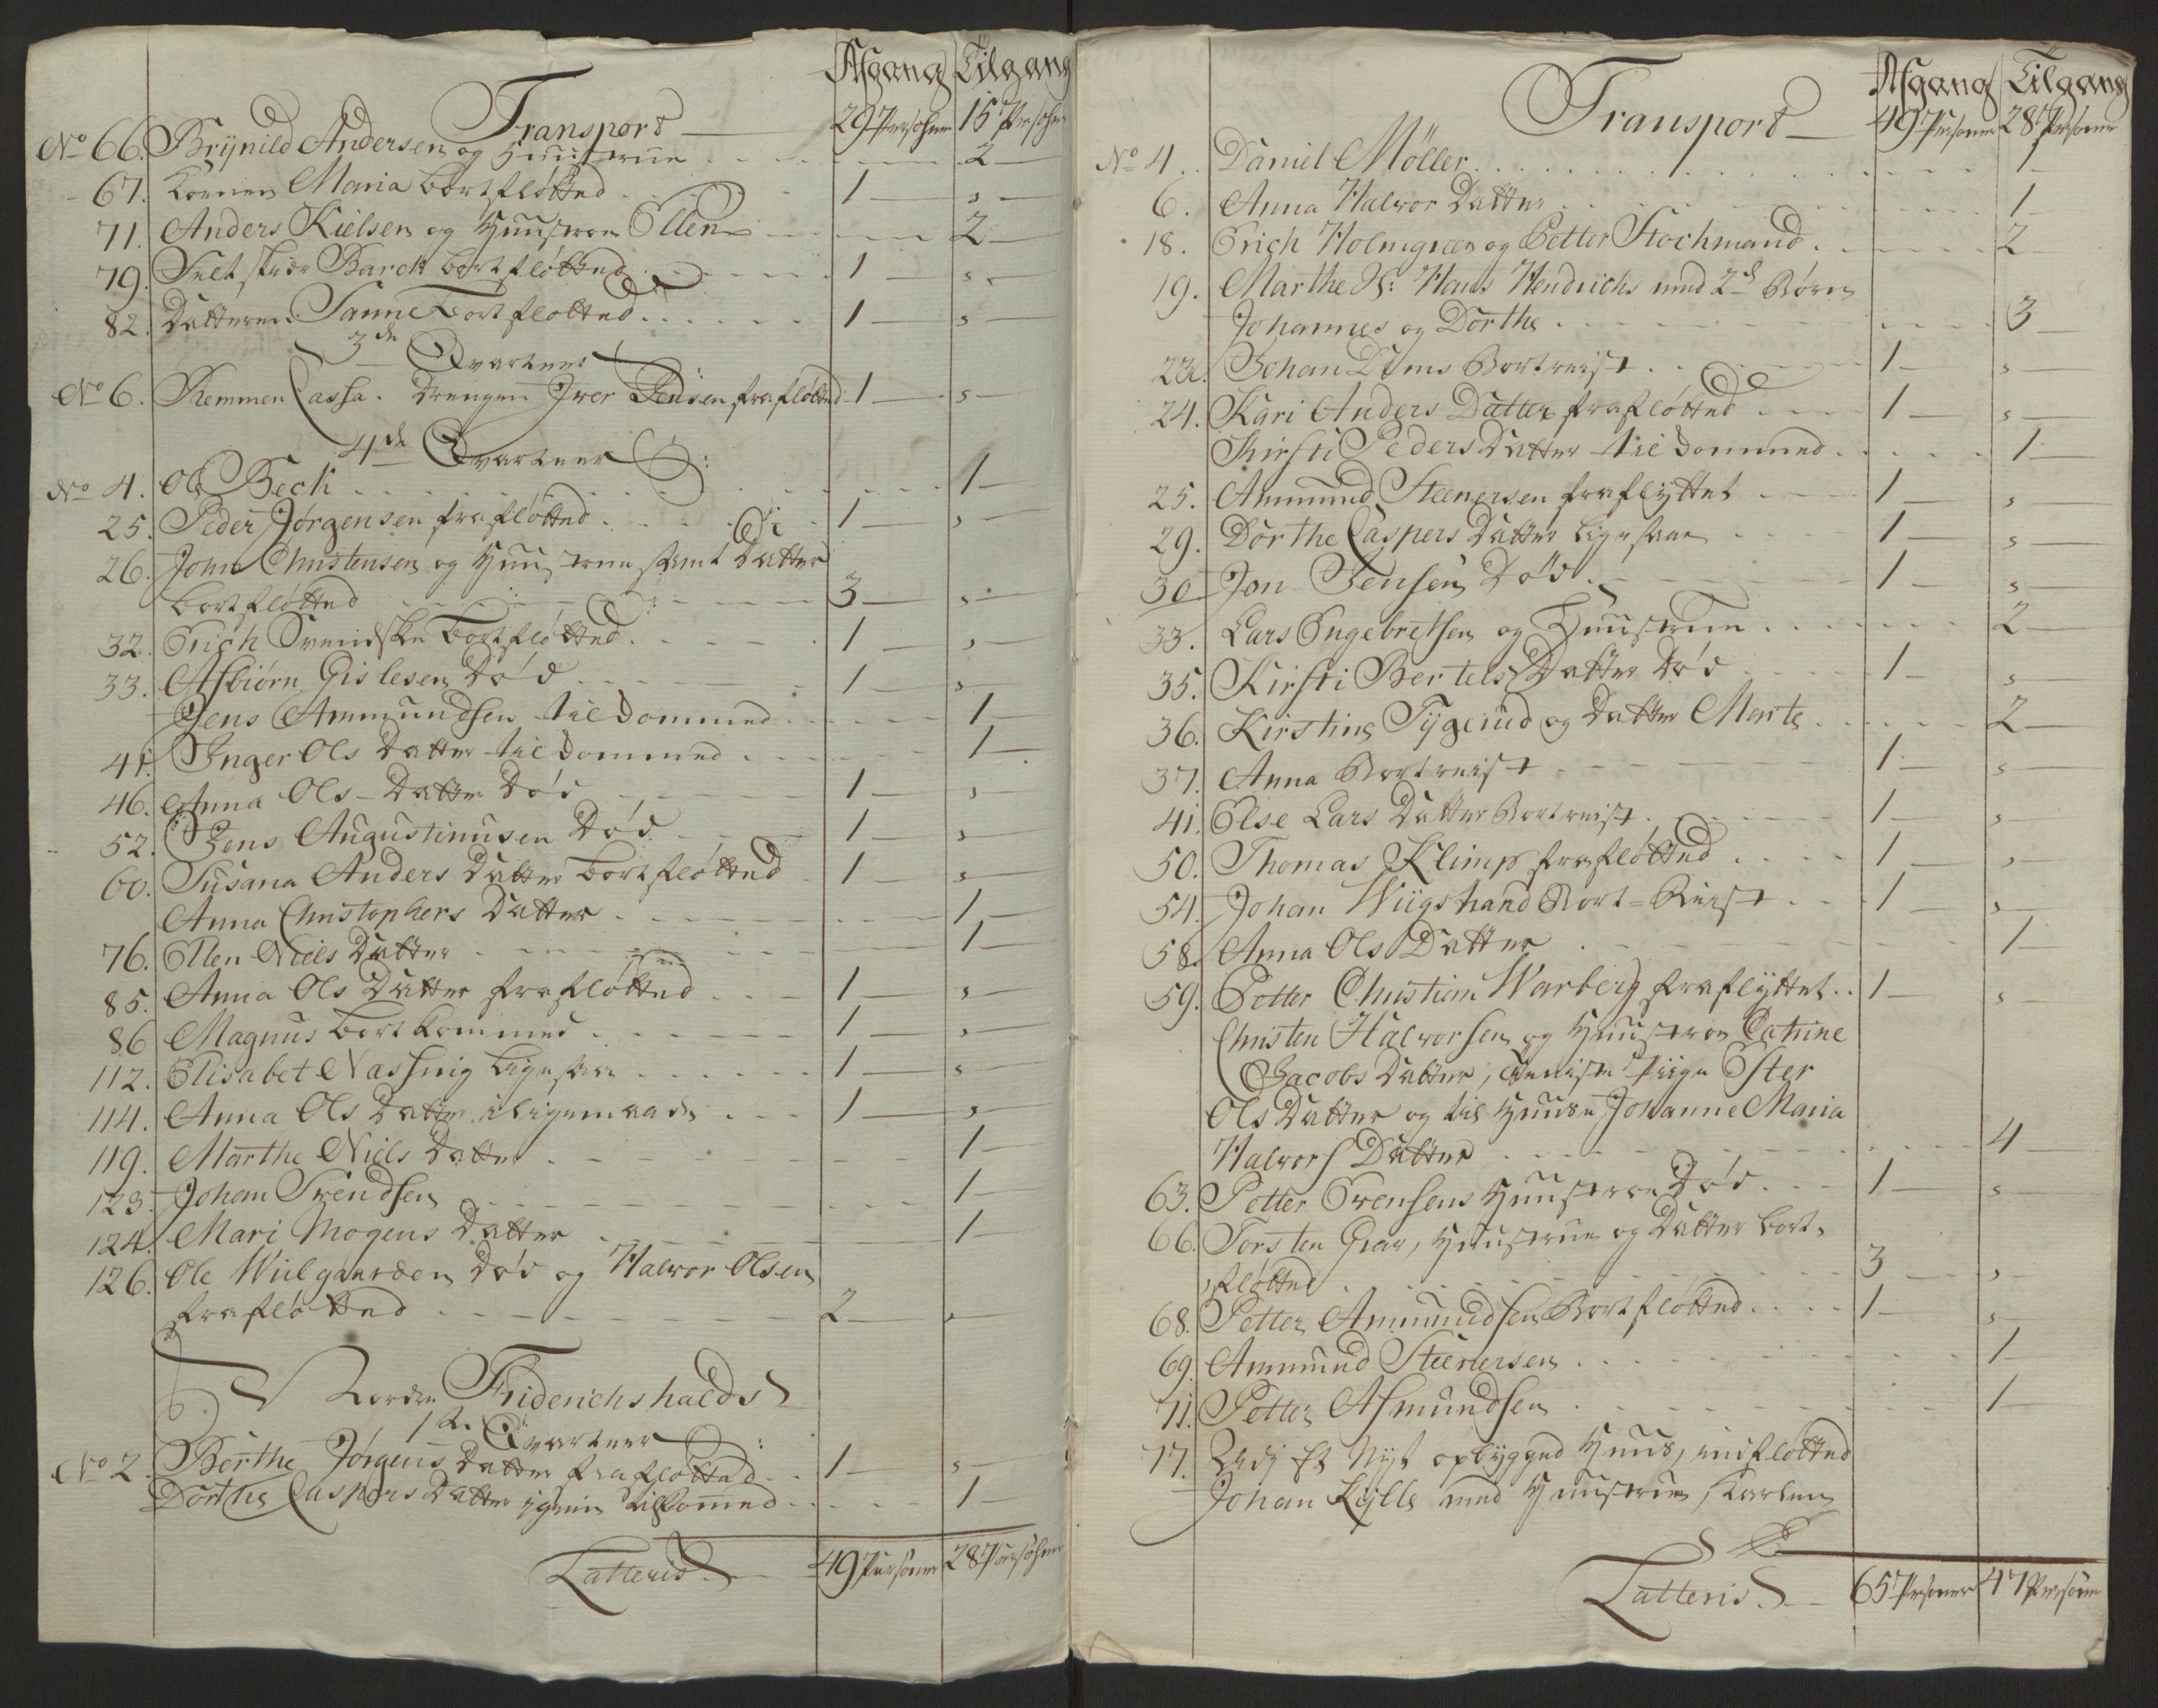 Afgang Tilgang
Transport — 29 Persohner 15 Persohner
No 66. Brynild Andersen og Hustrue 2 —
67. Konen Maria bortfløtted 1 — s —
71. Anders Kielsen og Huustroe Ellen 2 —
79. Feltskiær Barch bortfløtted 1 — s —
82. Datteren Sanne bortflotted 1 — s —
3de Qvarteer
No 6. Remmer Cassa. Drengen Iver Jensen frafløtted 1 — s —
4de Qvarteer
No 4. Ole Bech 1 —
25. Peder Jørgensen frafløtted 1 — s —
26. John Christensen og Huustrue samt Datter
bortfløtted 3 — s —
32. Erich Svendske bortfløtted 1 — s —
33. Asbiørn Gislesen Død 1 — s —
Jens Ammundsen tilkommed 1 —
41. Inger Ols Datter tilkommed 1 —
46. Anna Ols Datter Død 1 — s —
52. Jens Augustinusen Død 1 — s —
60. Susana Anders Datter bortfløtted 1 — s —
Anna Christophers Datter 1 —
76. Ellen Niels Datter 1 —
85. Anna Ols Datter frafløtted 1 — s —
86 Magnus bortkommed 1 — s —
112. Elisabet Nassnig ligesaa 1 — s —
114. Anna Ols Datter i ligemaade 1 — s —
119. Marthe Niels Datter 1 —
123. Johan Svendsen 1 —
124. Mari Mogens Datter 1 —
126. Ole Wielgaarden Død og Halvor Olsen
frafløtted 2 — s
Nordre Friderichshalds
1te Qvarteer
No 2. Berthe Jørgens Datter frafløtted 1 — s —
Dorthe Caspers Datter igien tilkommed 1 —
Latteris — 49 Personer 28 Persohner
Afgang Tilgang
Transport — 49 Personer 28 Personer
No 4. Daniel Møller 1 —
6. Anna Halvor Datter 1
18. Erich Holmgreen og Petter Stochmand 2
19. Marthe Sl: Hans Hendrichs med 2de Børn
Johannes og Dorthe 3 —
22. Johan Dims Bortreist 1 — s
24. Kari Anders Datter frafløtted 1 — s —
Kirsti Peders Datter tilkommed 1 —
25. Ammund Steenersen fraflyttet 1 — s —
29. Dorthe Caspers Datter ligesaa 1 — s —
30 Jon Jensen Død 1 — s —
33. Lars Ingebretsen og Huustrue 2 —
35. Kirsti Bertels Datter Død 1 — s
36. Kirstine Tygerud og Datter Merte 2 —
37. Anna Bortreist 1 — s —
41. Else Lars Datter Bortreist 1 — s —
50. Thomas Klimp frafløtted 1 — s —
54. Johan Wiigstrand Bort=Reist 1 — s —
58. Anna Ols Datter 1 —
59. Petter Christian Warberg fraflyttet 1 — s —
Christen Halvorsen og Huustroe Catrine
Jacobs Datter, tieniste Piige Ster
Ols Datter og til Huuse Johanne Maria
Halvors Datter 4 —
63. Petter Svensens Huustroe Død 1 — s
66. Torsten Graa, Huustrue og Datter bort-
fløtted 3 — s —
68. Petter Ammundsen Bortfløtted 1 — s —
69. Ammund Steenersen 1 —
71. Petter Asmundsen 1 —
77. Udi Et Nyt opbygged Huus, indfløtted
Johan Kylle med Huustrue, Karlen
Latteris — 65 Personer 47 Personer